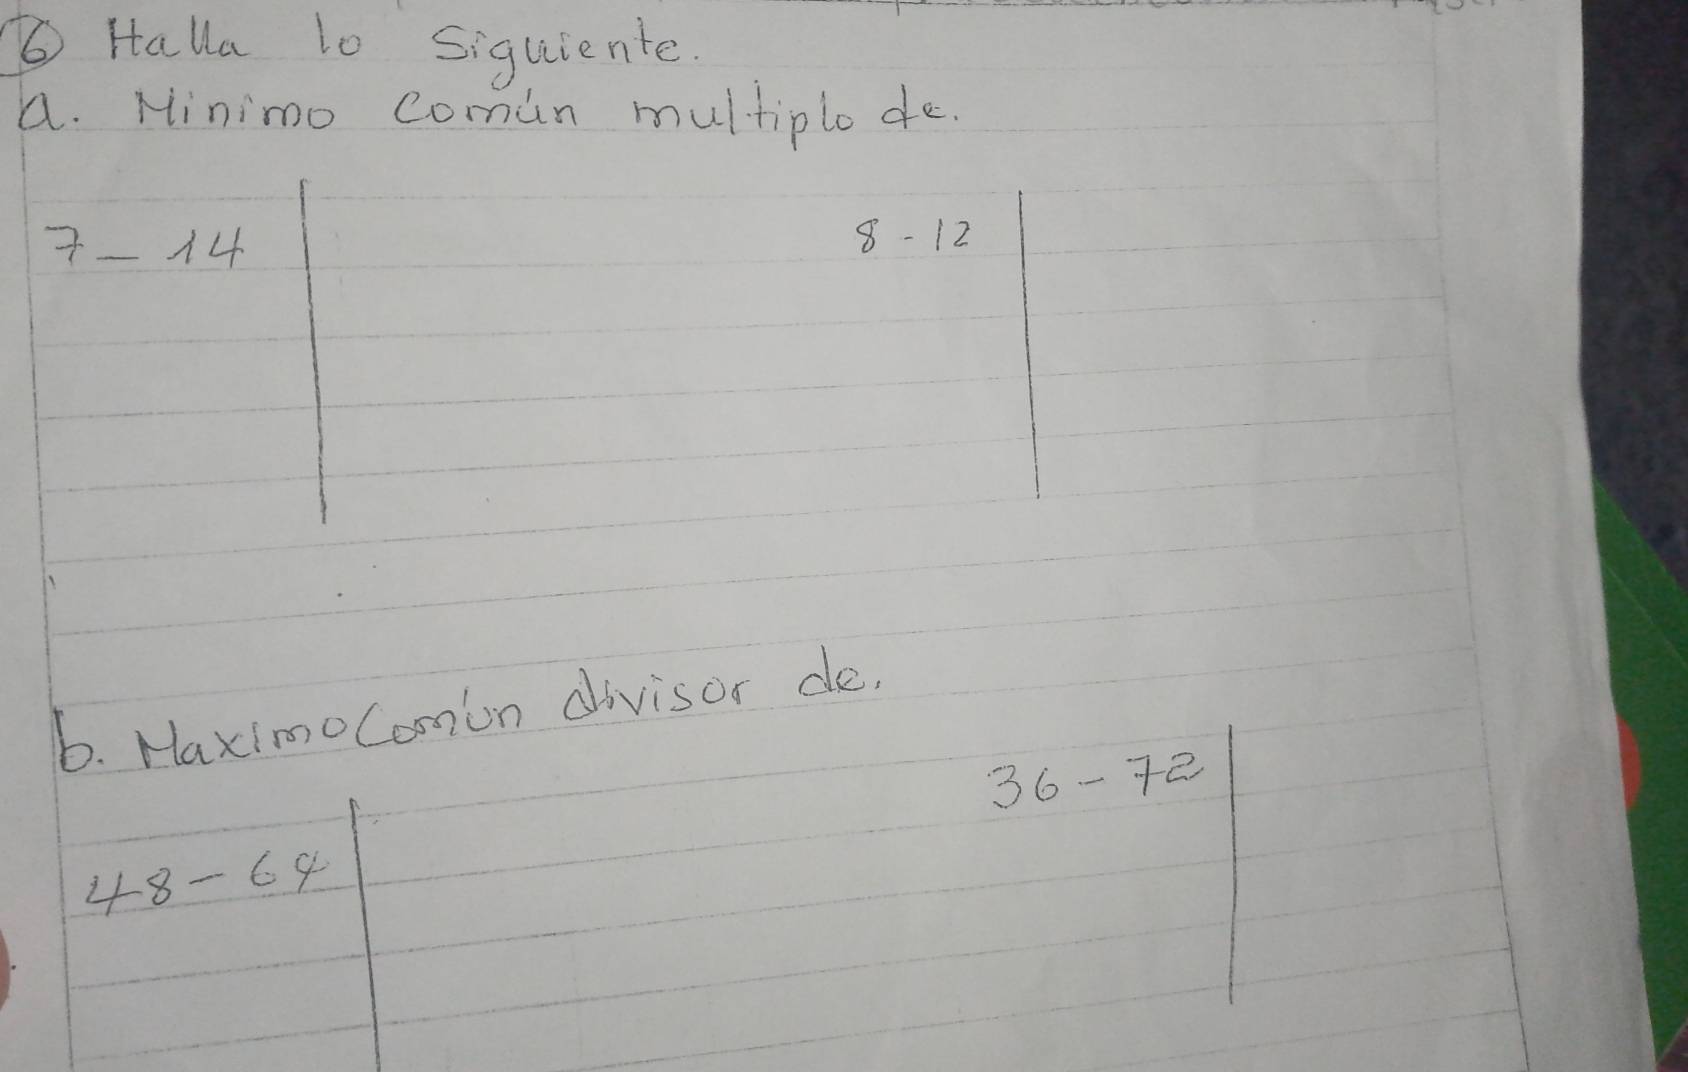 6 Halla lo Siguiente.
a. Minimo Común multiplo de.
7 - 14
8 - 12
b. Maximo Común divisor de.
36 - 72
48 - 64